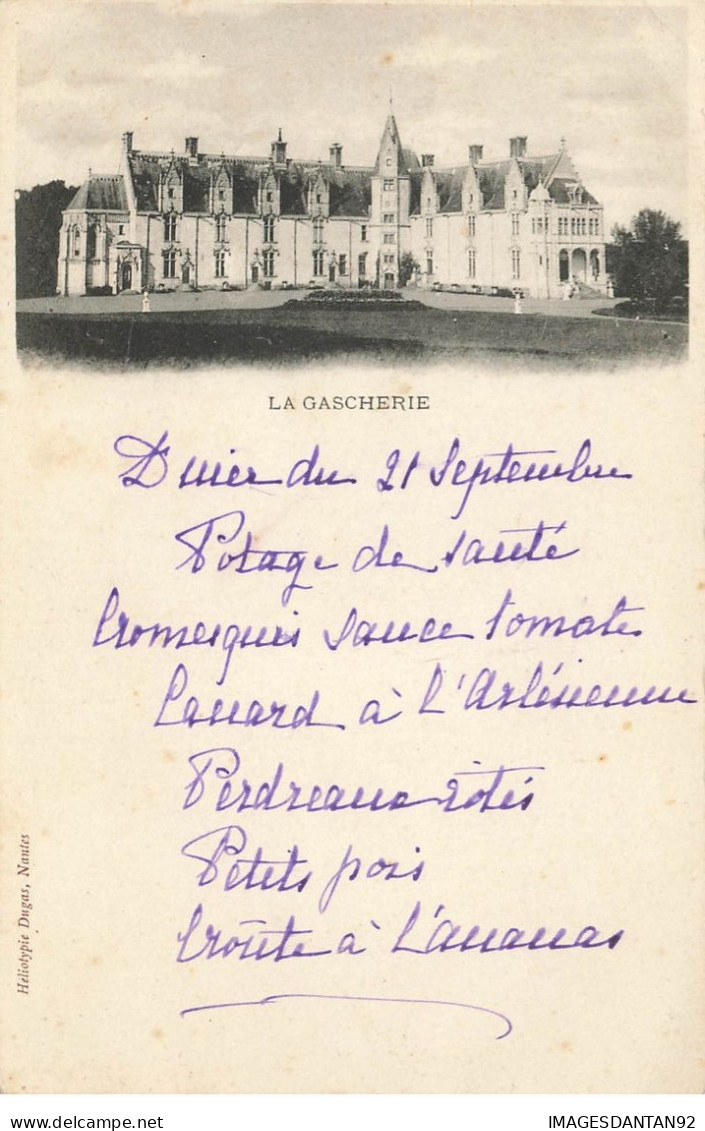 LA GASCHERIE
Dîner du 21 Septembre
Potage de santé
Cromesquis sauce tomate
Canard à l'Arlésienne
Perdreaux rôtis
Petits pois
Croûte à l'ananas
Héliotypie Dugas, Nantes
delcampe.net
IMAGESDANTAN92